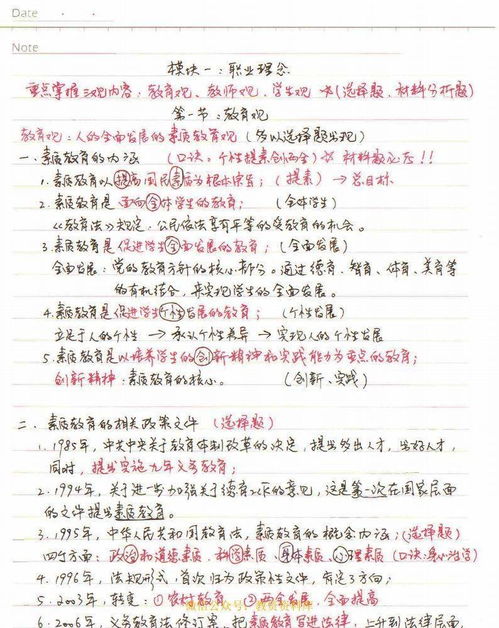 Date
Note
模块一：职业理念
重点掌握三观内容：教育观、教师观、学生观 ☆(选择题、材料分析题)
第一节：教育观
教育观：人的全面发展的素质教育观 (多以选择题出现)
一、素质教育的内涵 (口诀。个性提素创两全) ☆ 材料题必考！！
1. 素质教育以提高国民素质为根本宗旨； (提素) → 总目标
2. 素质教育是面向全体学生的教育； (全体学生)
《教育法》规定，公民依法享有平等的受教育的机会。
3. 素质教育是促进学生全面发展的教育； (全面发展)
全面发展：党的教育方针的核心部分。通过德育、智育、体育、美育等
的有机结合，来实现学生的全面发展。
4. 素质教育是促进学生个性发展的教育； (个性发展)
立足于人的个性 → 承认个性差异 → 实现人的个性发展
5. 素质教育是以培养学生的创新精神和实践能力为重点的教育；
创新精神：素质教育的核心。 (创新、实践)
二、素质教育的相关政策文件 (选择题)
1. 1985年，中共中央关于教育体制改革的决定，提出多出人才，出好人才，
同时，提出实施九年义务教育；
2. 1994年，关于进一步加强关于德育工作的意见，这是第一次在国家层面
的文件提出素质教育。
3. 1995年，中华人民共和国教育法，素质教育的概念内涵；(选择题)
四个方面：政治和道德素质、科学素质、身体素质、心理素质 (口诀：身心治学)
4. 1996年，法规形式，首次归为政策性文件，肯定3方向；
5. 2003年，转变：①农村教育 ②两全发展，全面提高
微信公众号：教资资料库
6. 2006年，义务教育法修订案，把素质教育写进法律，上升到法律层面，